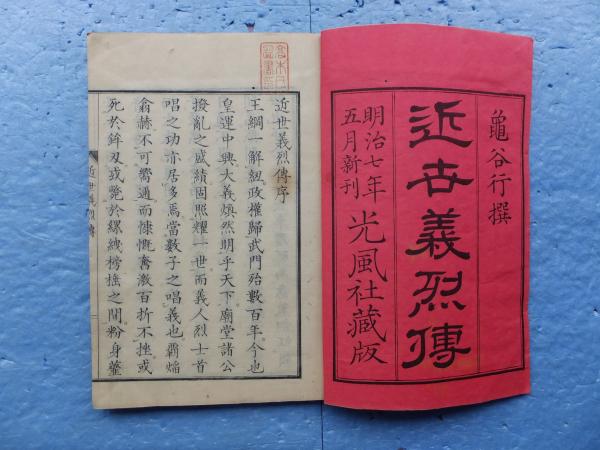 龜谷行撰
近世義烈傳
明治七年
五月新刊
光風社藏版
近世義烈傳序
王綱一解紐政權歸武門殆數百年今也
皇運中興大義煥然明乎天下廟堂諸公
撥亂之盛績固照耀一世而義人烈士首
唱之功亦居多焉當數子之唱義也霸焰
翕赫不可嚮邇而慷慨奮激百折不挫或
死於鋒刃或斃於縲絏榜箠之間粉身虀
近世義烈傳